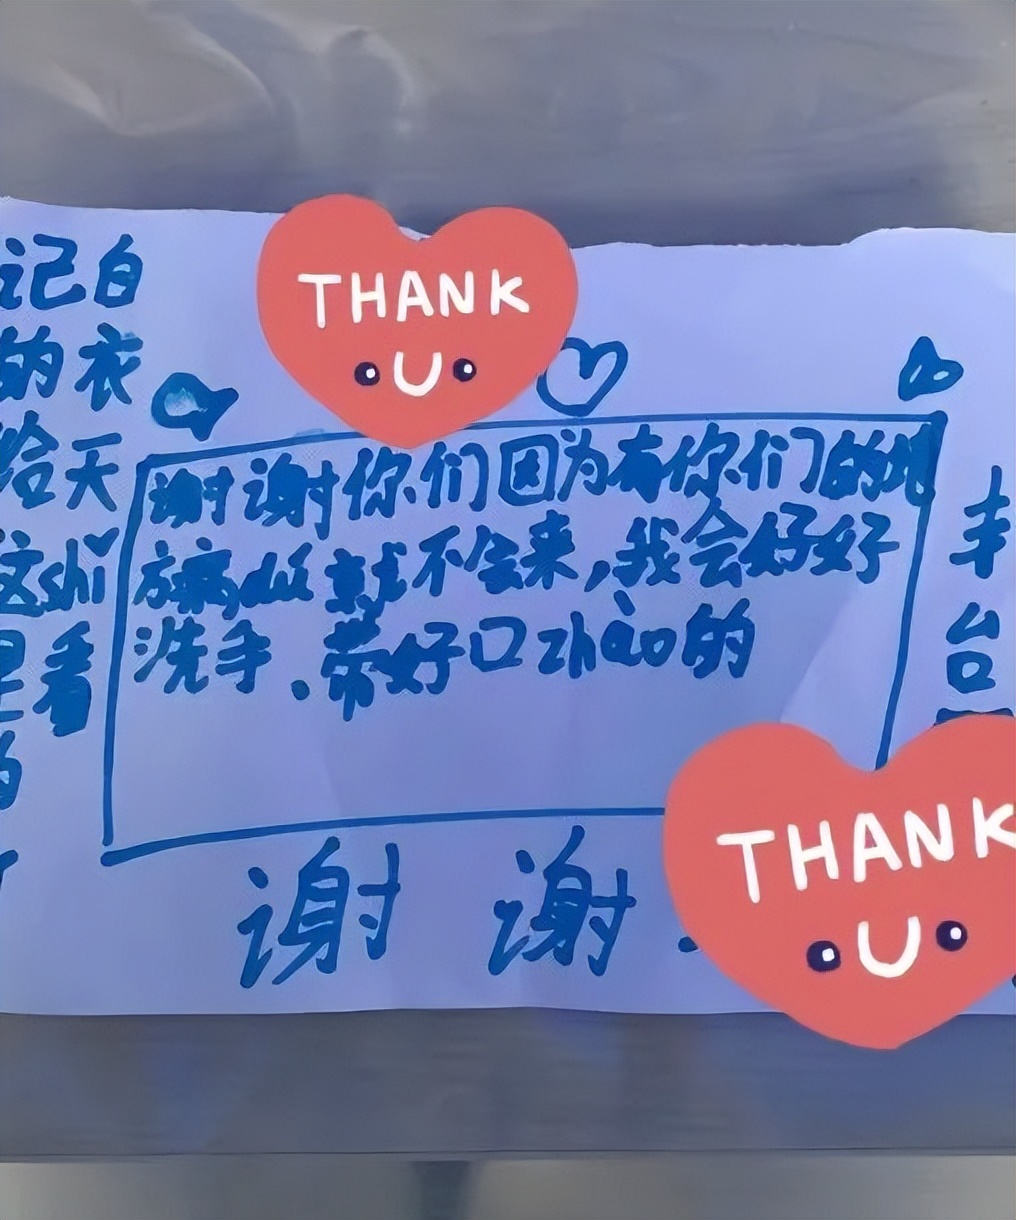 THANK
U
记白
的衣
给天
这shì
里看
的
谢谢你们因为有你们的
就不会来,我会好好
洗手.带好口zhào的
丰
台
谢 谢
THANK
U